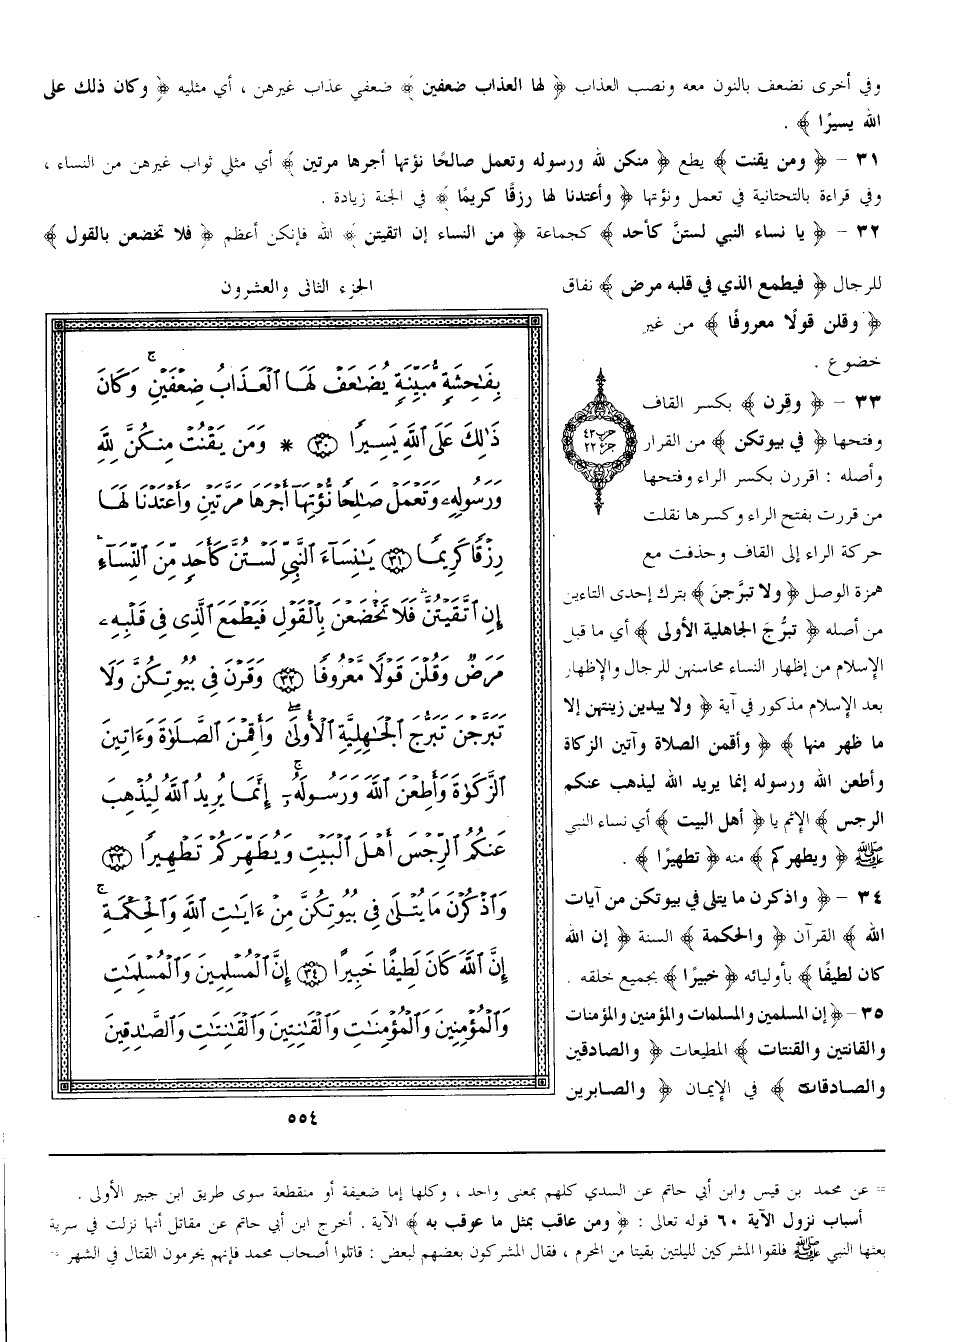 وفي أخرى نضعف بالنون معه ونصب العذاب ﴿ لها العذاب ضعفين ﴾ ضعفي عذاب غيرهن ، أي مثليه ﴿ وكان ذلك على
الله يسيرًا ﴾ .
٣١ - ﴿ ومن يقنت ﴾ يطع ﴿ منكن لله ورسوله وتعمل صالحًا نؤتها أجرها مرتين ﴾ أي مثلي ثواب غيرهن من النساء ،
وفي قراءة بالتحتانية في تعمل ونؤتها ﴿ وأعتدنا لها رزقًا كريمًا ﴾ في الجنة زيادة .
٣٢ - ﴿ يا نساء النبي لستنَّ كأحد ﴾ كجماعة ﴿ من النساء إن اتقيتن ﴾ الله فإنكن أعظم ﴿ فلا تخضعن بالقول ﴾
للرجال ﴿ فيطمع الذي في قلبه مرض ﴾ نفاق
﴿ وقلن قولًا معروفًا ﴾ من غير
خضوع .
٣٣ - ﴿ وقِرن ﴾ بكسر القاف
وفتحها ﴿ في بيوتكن ﴾ من القرار
وأصله : اقررن بكسر الراء وفتحها
من قررت بفتح الراء وكسرها نقلت
حركة الراء إلى القاف وحذفت مع
همزة الوصل ﴿ ولا تبرَّجنَ ﴾ بترك إحدى التاءين
من أصله ﴿ تبرُّجَ الجاهلية الأولى ﴾ أي ما قبل
الإسلام من إظهار النساء محاسنهن للرجال والإظهار
بعد الإسلام مذكور في آية ﴿ ولا يبدين زينتهن إلا
ما ظهر منها ﴾ ﴿ وأقمن الصلاة وآتين الزكاة
وأطعن الله ورسوله إنما يريد الله ليذهب عنكم
الرجس ﴾ الإثم يا ﴿ أهل البيت ﴾ أي نساء النبي
ﷺ ﴿ ويطهركم ﴾ منه ﴿ تطهيرًا ﴾ .
٣٤ - ﴿ واذكرن ما يتلى في بيوتكن من آيات
الله ﴾ القرآن ﴿ والحكمة ﴾ السنة ﴿ إن الله
كان لطيفًا ﴾ بأوليائه ﴿ خبيرًا ﴾ بجميع خلقه .
٣٥ - ﴿ إن المسلمين والمسلمات والمؤمنين والمؤمنات
والقانتين والقنتات ﴾ المطيعات ﴿ والصادقين
والصادقات ﴾ في الإيمان ﴿ والصابرين
حزب ٤٣
جزء ٢٢
الجزء الثانى والعشرون
بِفَٰحِشَةٍ مُّبَيِّنَةٍ يُضَٰعَفْ لَهَا ٱلْعَذَابُ ضِعْفَيْنِ ۚ وَكَانَ
ذَٰلِكَ عَلَى ٱللَّهِ يَسِيرًا ﴿٣٠﴾ * وَمَن يَقْنُتْ مِنكُنَّ لِلَّهِ
وَرَسُولِهِۦ وَتَعْمَلْ صَٰلِحًا نُّؤْتِهَآ أَجْرَهَا مَرَّتَيْنِ وَأَعْتَدْنَا لَهَا
رِزْقًا كَرِيمًا ﴿٣١﴾ يَٰنِسَآءَ ٱلنَّبِيِّ لَسْتُنَّ كَأَحَدٍ مِّنَ ٱلنِّسَآءِ ۚ
إِنِ ٱتَّقَيْتُنَّ فَلَا تَخْضَعْنَ بِٱلْقَوْلِ فَيَطْمَعَ ٱلَّذِى فِى قَلْبِهِۦ
مَرَضٌ وَقُلْنَ قَوْلًا مَّعْرُوفًا ﴿٣٢﴾ وَقَرْنَ فِى بُيُوتِكُنَّ وَلَا
تَبَرَّجْنَ تَبَرُّجَ ٱلْجَٰهِلِيَّةِ ٱلْأُولَىٰ ۖ وَأَقِمْنَ ٱلصَّلَوٰةَ وَءَاتِينَ
ٱلزَّكَوٰةَ وَأَطِعْنَ ٱللَّهَ وَرَسُولَهُۥٓ ۚ إِنَّمَا يُرِيدُ ٱللَّهُ لِيُذْهِبَ
عَنكُمُ ٱلرِّجْسَ أَهْلَ ٱلْبَيْتِ وَيُطَهِّرَكُمْ تَطْهِيرًا ﴿٣٣﴾
وَٱذْكُرْنَ مَا يُتْلَىٰ فِى بُيُوتِكُنَّ مِنْ ءَايَٰتِ ٱللَّهِ وَٱلْحِكْمَةِ ۚ
إِنَّ ٱللَّهَ كَانَ لَطِيفًا خَبِيرًا ﴿٣٤﴾ إِنَّ ٱلْمُسْلِمِينَ وَٱلْمُسْلِمَٰتِ
وَٱلْمُؤْمِنِينَ وَٱلْمُؤْمِنَٰتِ وَٱلْقَٰنِتِينَ وَٱلْقَٰنِتَٰتِ وَٱلصَّٰدِقِينَ
٥٥٤
= عن محمد بن قيس وابن أبي حاتم عن السدي كلهم بمعنى واحد ، وكلها إما ضعيفة أو منقطعة سوى طريق ابن جبير الأولى .
أسباب نزول الآية ٦٠ قوله تعالى : ﴿ ومن عاقب بمثل ما عوقب به ﴾ الآية . أخرج ابن أبي حاتم عن مقاتل أنها نزلت في سرية
بعثها النبي ﷺ فلقوا المشركين لليلتين بقيتا من المحرم ، فقال المشركون بعضهم لبعض : قاتلوا أصحاب محمد فإنهم يحرمون القتال في الشهر =